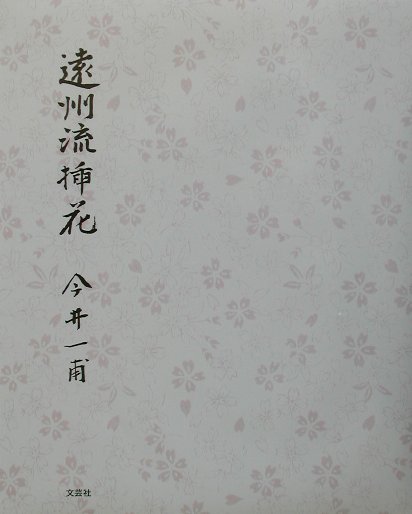 遠州流挿花
今井一甫
文芸社